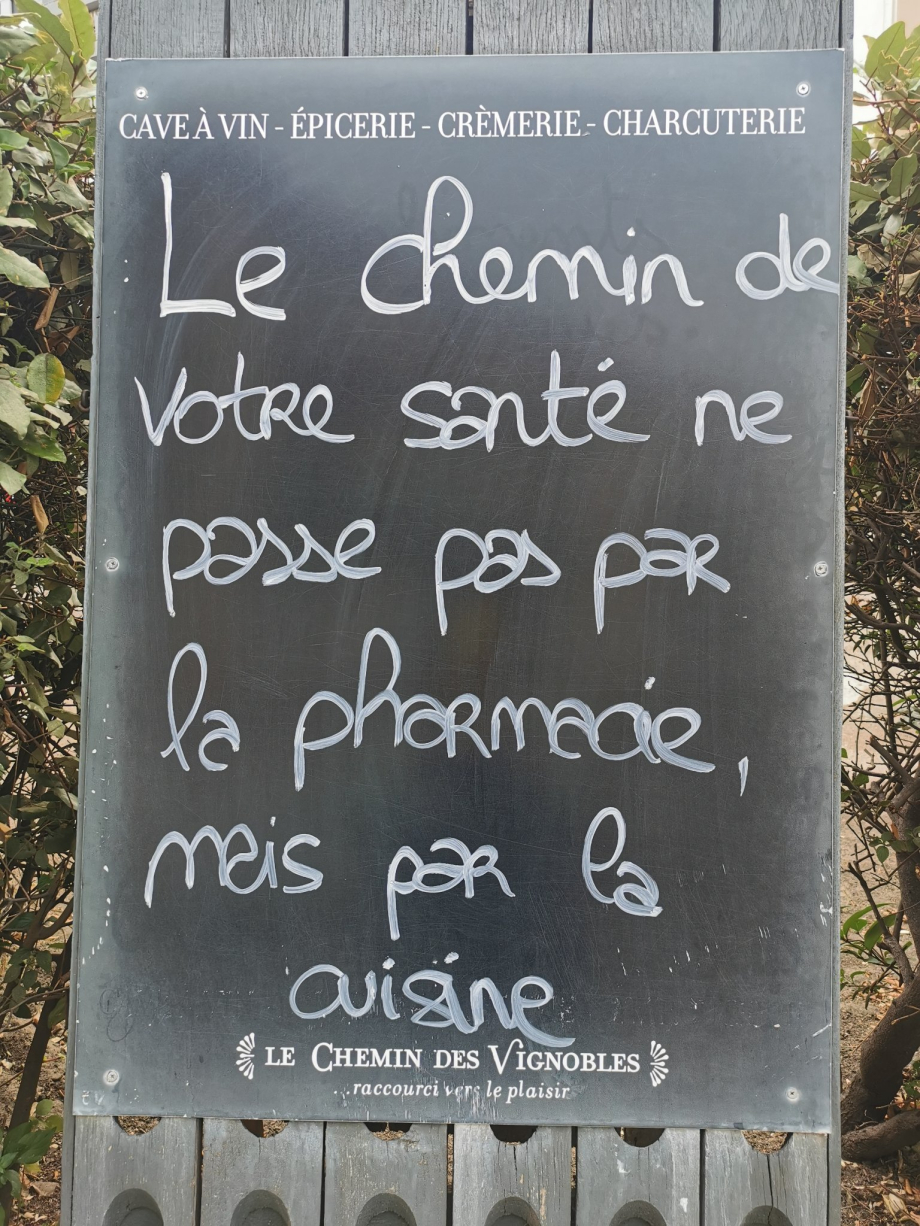 CAVE À VIN - ÉPICERIE - CRÈMERIE - CHARCUTERIE
Le chemin de
votre santé ne
passe pas par
la pharmacie,
mais par la
cuisine
LE CHEMIN DES VIGNOBLES
...raccourci vers le plaisir